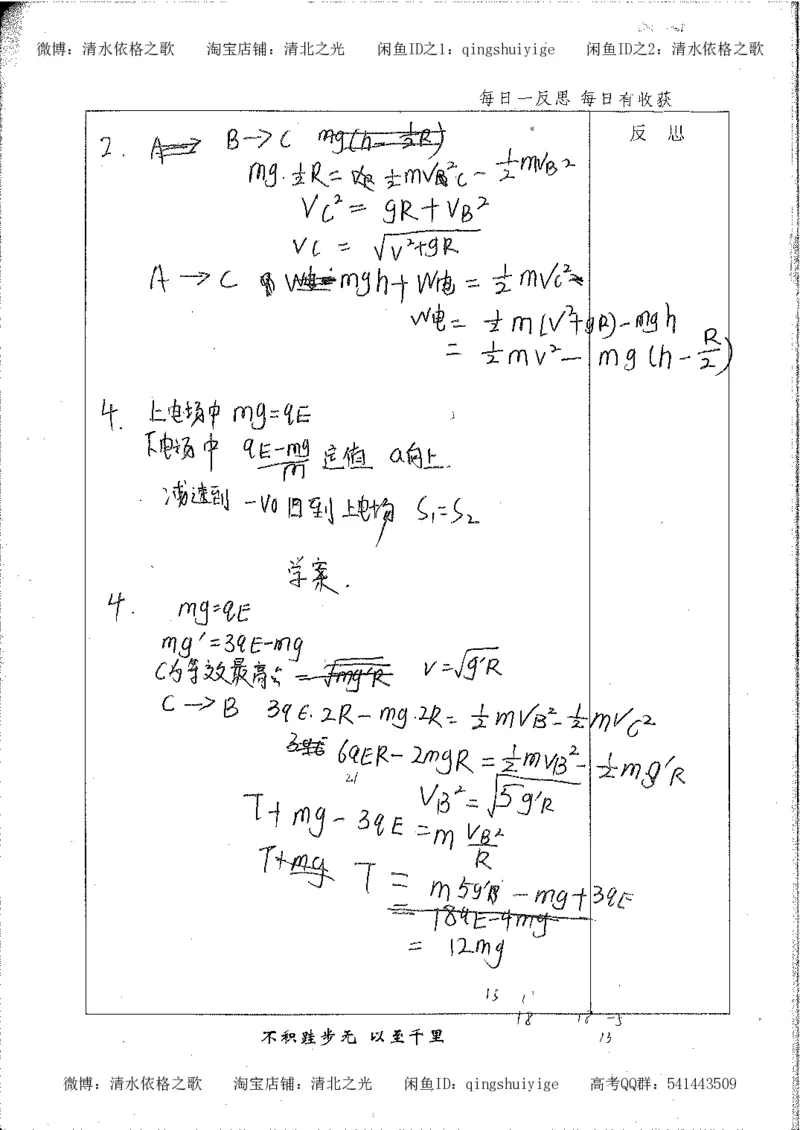 微博：清水依格之歌 淘宝店铺：清北之光 闲鱼ID之1：qingshuiyige 闲鱼ID之2：清水依格之歌
每日一反思 每日有收获
反 思
2. A B→C mg(h-½R)
mg·½R= ½mVC² - ½mVB²
VC² = gR+VB²
VC = √(V²+gR)
A→C mgh+W电 = ½mVC²
W电 = ½m(V²+gR)-mgh
= ½mv² - mg(h-R/2)
4. 上电场中 mg=qE
下电场中 (qE-mg)/m 定值 a向上
减速到 -V0 回到上电场 S₁=S₂
学案.
4. mg=qE
mg'=3qE-mg
C为等效最高点 =√mg'R V=√g'R
C→B 3qE·2R-mg·2R= ½mVB²-½mVC²
6qER-2mgR = ½mVB²-½mg'R
VB²=√5g'R
T+mg-3qE=m VB²/R
T+mg T = m5g'R-mg+3qE
= 18qE-4mg
= 12mg
15 1
18 18 -5
13
不积跬步无 以至千里
微博：清水依格之歌 淘宝店铺：清北之光 闲鱼ID：qingshuiyige 高考QQ群：541443509